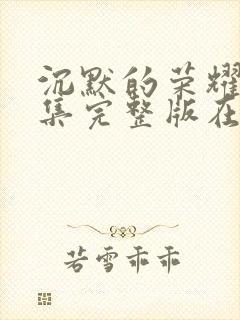 沉默的荣耀
集完整版在
若雪乖乖